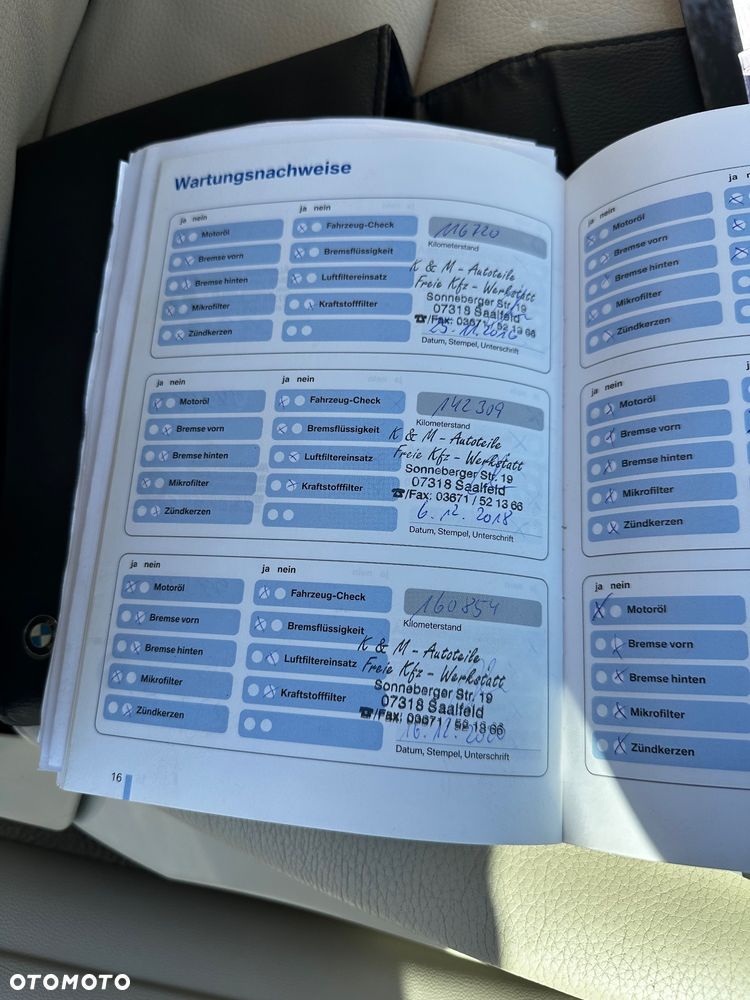 Wartungsnachweise
ja nein
ja nein
Motoröl
Fahrzeug-Check
116720
Bremse vorn
Bremsflüssigkeit
Kilometerstand
Bremse hinten
Luftfiltereinsatz
K & M - Autoteile
Freie Kfz - Werkstatt
Mikrofilter
Kraftstofffilter
Sonneberger Str. 19
07318 Saalfeld
Zündkerzen
☎/Fax: 03671 / 52 13 66
23.11.2016
Datum, Stempel, Unterschrift
ja nein
ja nein
Motoröl
Fahrzeug-Check
142309
Bremse vorn
Bremsflüssigkeit
Kilometerstand
Bremse hinten
Luftfiltereinsatz
K & M - Autoteile
Freie Kfz - Werkstatt
Mikrofilter
Kraftstofffilter
Sonneberger Str. 19
07318 Saalfeld
Zündkerzen
☎/Fax: 03671 / 52 13 66
6.12.2018
Datum, Stempel, Unterschrift
ja nein
ja nein
Motoröl
Fahrzeug-Check
160854
Bremse vorn
Bremsflüssigkeit
Kilometerstand
Bremse hinten
Luftfiltereinsatz
K & M - Autoteile
Freie Kfz - Werkstatt
Mikrofilter
Kraftstofffilter
Sonneberger Str. 19
07318 Saalfeld
Zündkerzen
☎/Fax: 03671 / 52 13 66
16.12.2020
Datum, Stempel, Unterschrift
16
ja nein
ja
Motoröl
Bremse vorn
Bremse hinten
Mikrofilter
Zündkerzen
ja nein
Motoröl
Bremse vorn
Bremse hinten
Mikrofilter
Zündkerzen
ja nein
Motoröl
Bremse vorn
Bremse hinten
Mikrofilter
Zündkerzen
OTOMOTO